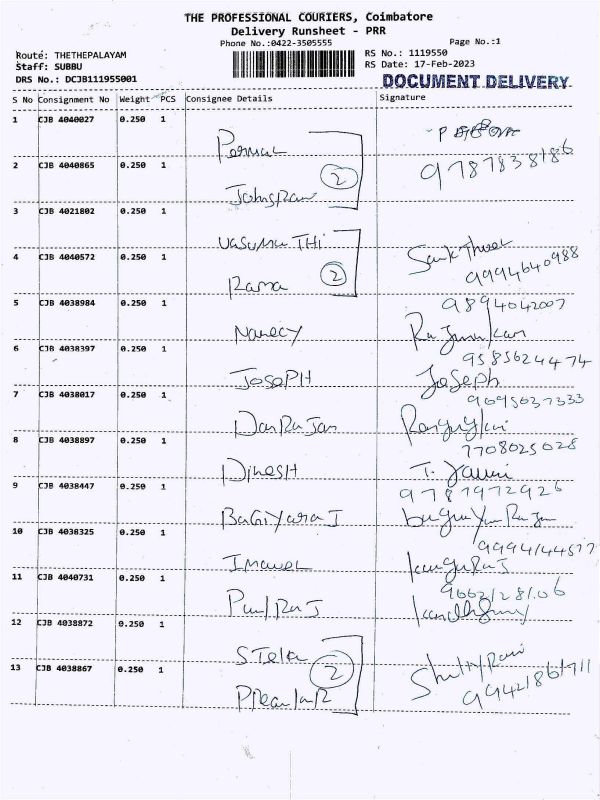 THE PROFESSIONAL COURIERS, Coimbatore
Delivery Runsheet - PRR
Phone No.:0422-3505555
Page No.:1
Route: THETHEPALAYAM
RS No.: 1119550
Staff: SUBBU
RS Date: 17-Feb-2023
DRS No.: DCJB111955001
DOCUMENT DELIVERY
S No Consignment No Weight PCS Consignee Details Signature
1 CJB 4040027 0.250 1
Permal
2 CJB 4040865 0.250 1
2
9787838186
3 CJB 4021802 0.250 1
VasumaTHi
4 CJB 4040572 0.250 1
2
9994640988
Rama
5 CJB 4038984 0.250 1
9894042007
6 CJB 4038397 0.250 1
9585624474
JosePH Joseph
7 CJB 4038017 0.250 1
9095037333
DanRaJan
8 CJB 4038897 0.250 1
7708025028
DinesH
9 CJB 4038447 0.250 1
9787972926
BaGiYaraJ
10 CJB 4038325 0.250 1
11 CJB 4040731 0.250 1
PaulRaJ
12 CJB 4038872 0.250 1
STella
2
13 CJB 4038867 0.250 1